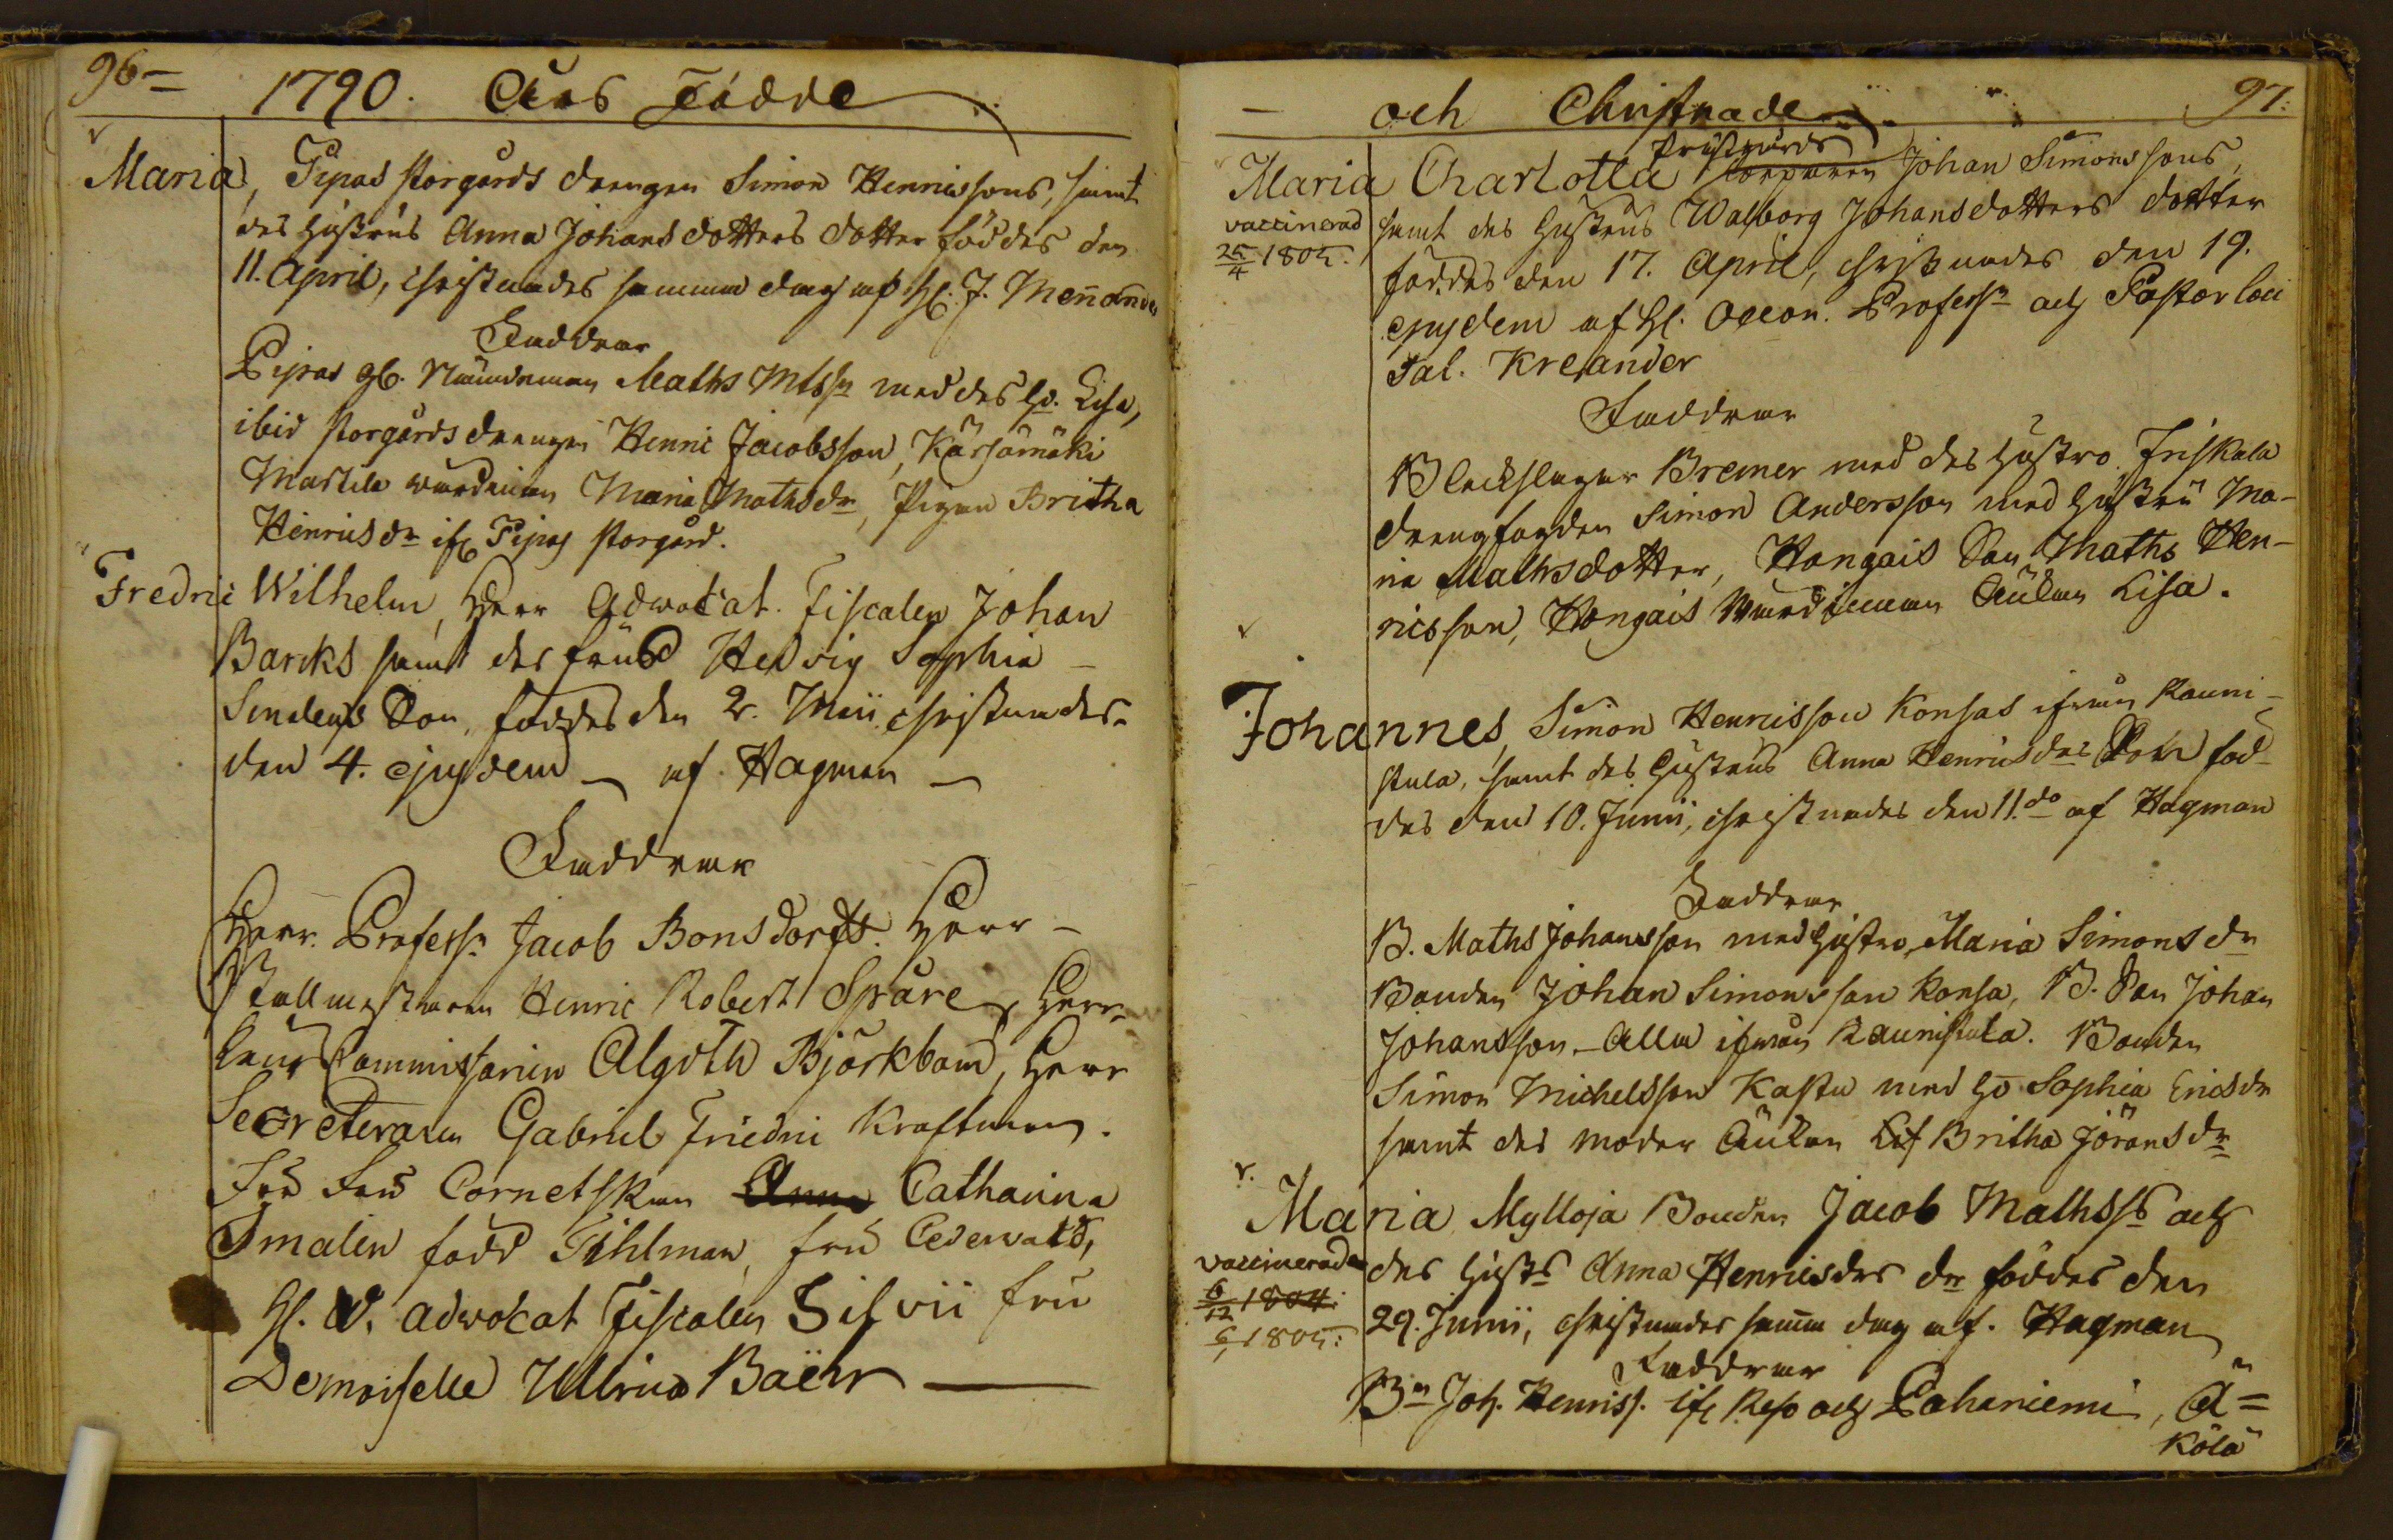 96
1790. Års Födde
Maria, Pipas storgårds drengen Simon Henricssons, samt
des Hustrus Anna Johansdotters dotter föddes den
11. April, christnades samma dag af H. J. Menander
Faddrar
Pipas gl. Nämdeman Maths Mtssn med des h. Lisa,
ibid storgårds drengen Henric Jacobsson, Kärsämäki
Martila wärdinnan Maria Mathsdr, Pigan Britha
Henricsdr if Pipas storgård.
Fredric Wilhelm, Herr Advocat. Fiscalen Johan
Barcks samt des frus Hedvig Sophia
Son, föddes den 2. Maii christnades
den 4. ejusdem af Hagman
Faddrar
Herr. Professr Jacob Bonsdorff. Herr
Stallmästaren Henric Robert Spåre, Herr
Commissarien Algoth Björkbom, Herr
Secreteraren Gabriel Friedric Kraftman.
Fru Cornetskan Anna Catharina
Amalen född Tihlman, fru Cederwald,
H. V. advocat Fiscalen Silvii fru
Demoiselle Ullrica Baëhr
och Christnade
97.
Prästgårds
Maria Charlotta Torparen Johan Simonssons,
vaccinerad samt des Hustrus Walborg Johansdotters dotter
25/4 1805. föddes den 17. April, christnades den 19.
ejusdem af H. Oecon. Professr och Pastor loci
Sal. Kreander
Faddrar
Bleckslagar Bremer med des Hustro. Friskala
drengfogden Simon Andersson med Hustru Ma-
ria Mathsdotter, Hongais Son Maths Hen-
ricsson, Hongais Wärdinnan Änkan Lisa.
Johannes, Simon Henricsson Konsas ifrån Rauni-
stula, samt des Hustrus Anna Henricsdrs Son föd-
des den 10. Junii, christnades den 11. do af Hagman
Faddrar
B. Maths Johansson med Hustro Maria Simonsdr
Bonden Johan Simonsson Konsa, B. Son Johan
Johansson - Alla ifrån Raunistula. Bonden
Simon Michelsson Kastu med Ho Sophia Ericsdr
samt des moder Änkan Britha Jöransdr
Maria Mylloja Bonden Jacob Mathss och
vaccinerad des Hust Anna Henricsdrs dr föddes den
6/12 1804. 29. Junii, christnades samma dag af. Hagman
1805.
Faddrar
Bn Joh. Henriss. if Reso och Pahaniemi, Ä=
kölä